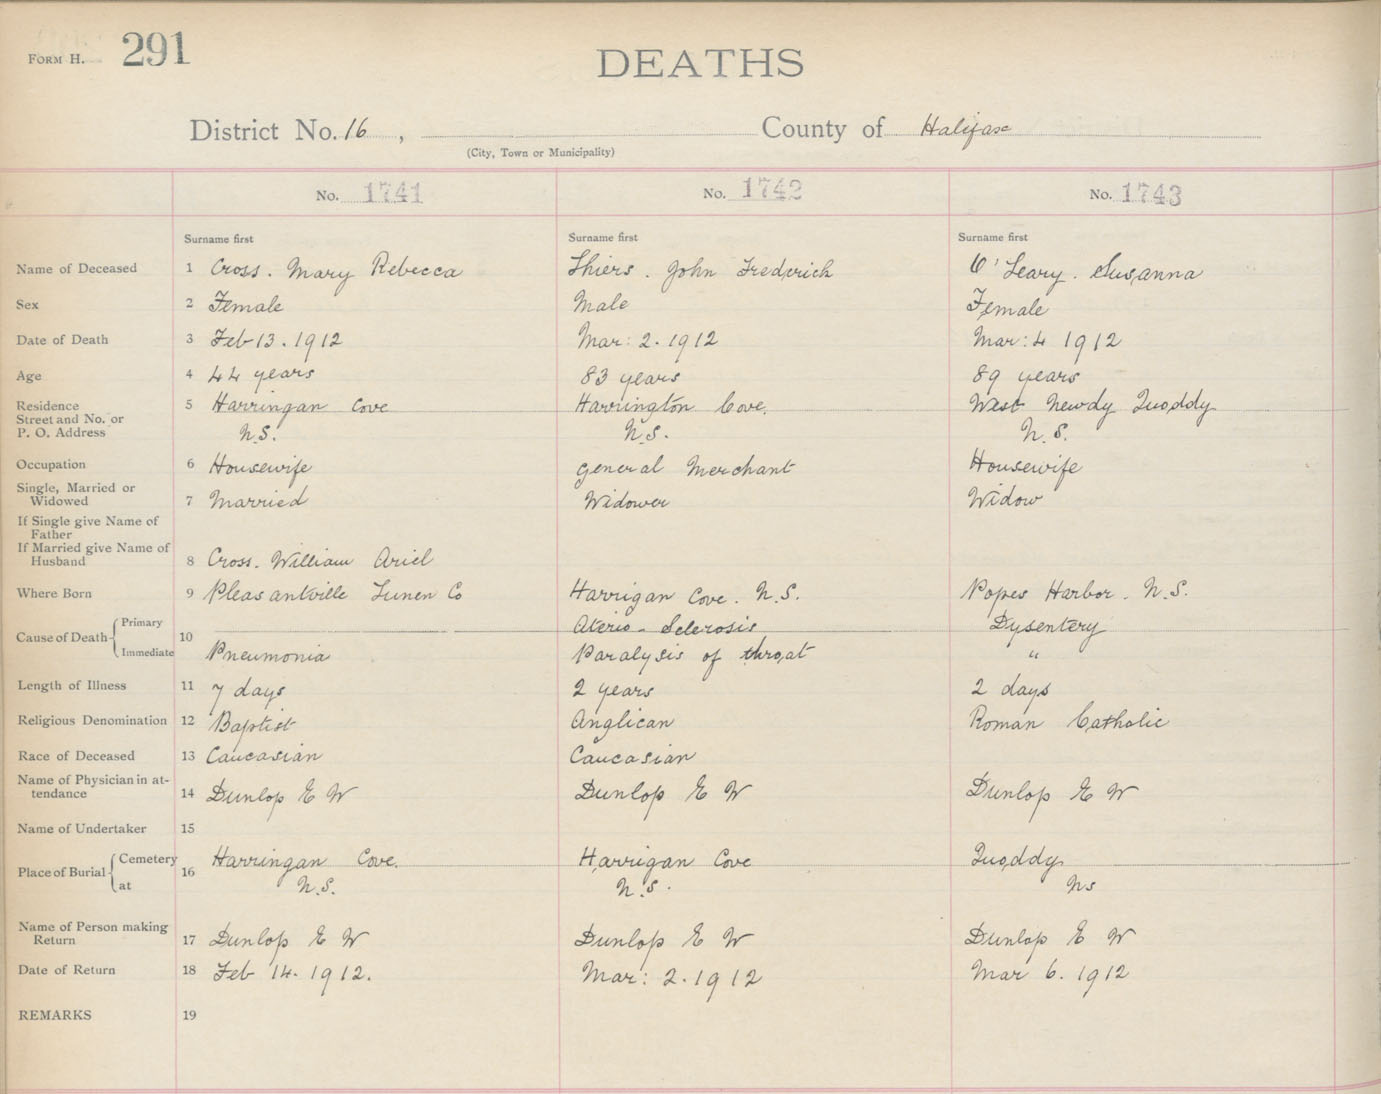 FORM H. 291
DEATHS
District No. 16, County of Halifax
(City, Town or Municipality)
No. 1741 No. 1742 No. 1743
Surname first Surname first Surname first
Name of Deceased 1 Cross. Mary Rebecca Shiers. John Frederick O'Leary. Susanna
Sex 2 Female Male Female
Date of Death 3 Feb 13. 1912 Mar: 2. 1912 Mar: 4 1912
Age 4 44 years 83 years 89 years
Residence 5 Harringan Cove Harrington Cove. West Newdy Quoddy
Street and No. or
P. O. Address N.S. N.S. N.S.
Occupation 6 Housewife General Merchant Housewife
Single, Married or
Widowed 7 Married Widower Widow
If Single give Name of
Father
If Married give Name of
Husband 8 Cross. William Ariel
Where Born 9 Pleasantville Lunen Co Harrigan Cove. N.S. Popes Harbor. N.S.
Cause of Death Primary 10 Aterio-Sclerosis Dysentery
Immediate Pneumonia Paralysis of throat "
Length of Illness 11 7 days 2 years 2 days
Religious Denomination 12 Baptist Anglican Roman Catholic
Race of Deceased 13 Caucasian Caucasian
Name of Physician in at-
tendance 14 Dunlop E W Dunlop E W Dunlop E W
Name of Undertaker 15
Place of Burial Cemetery 16 Harringan Cove. Harrigan Cove Quoddy
at N.S. N.S. Ns
Name of Person making
Return 17 Dunlop E W Dunlop E W Dunlop E W
Date of Return 18 Feb 14. 1912. Mar: 2. 1912 Mar 6. 1912
REMARKS 19